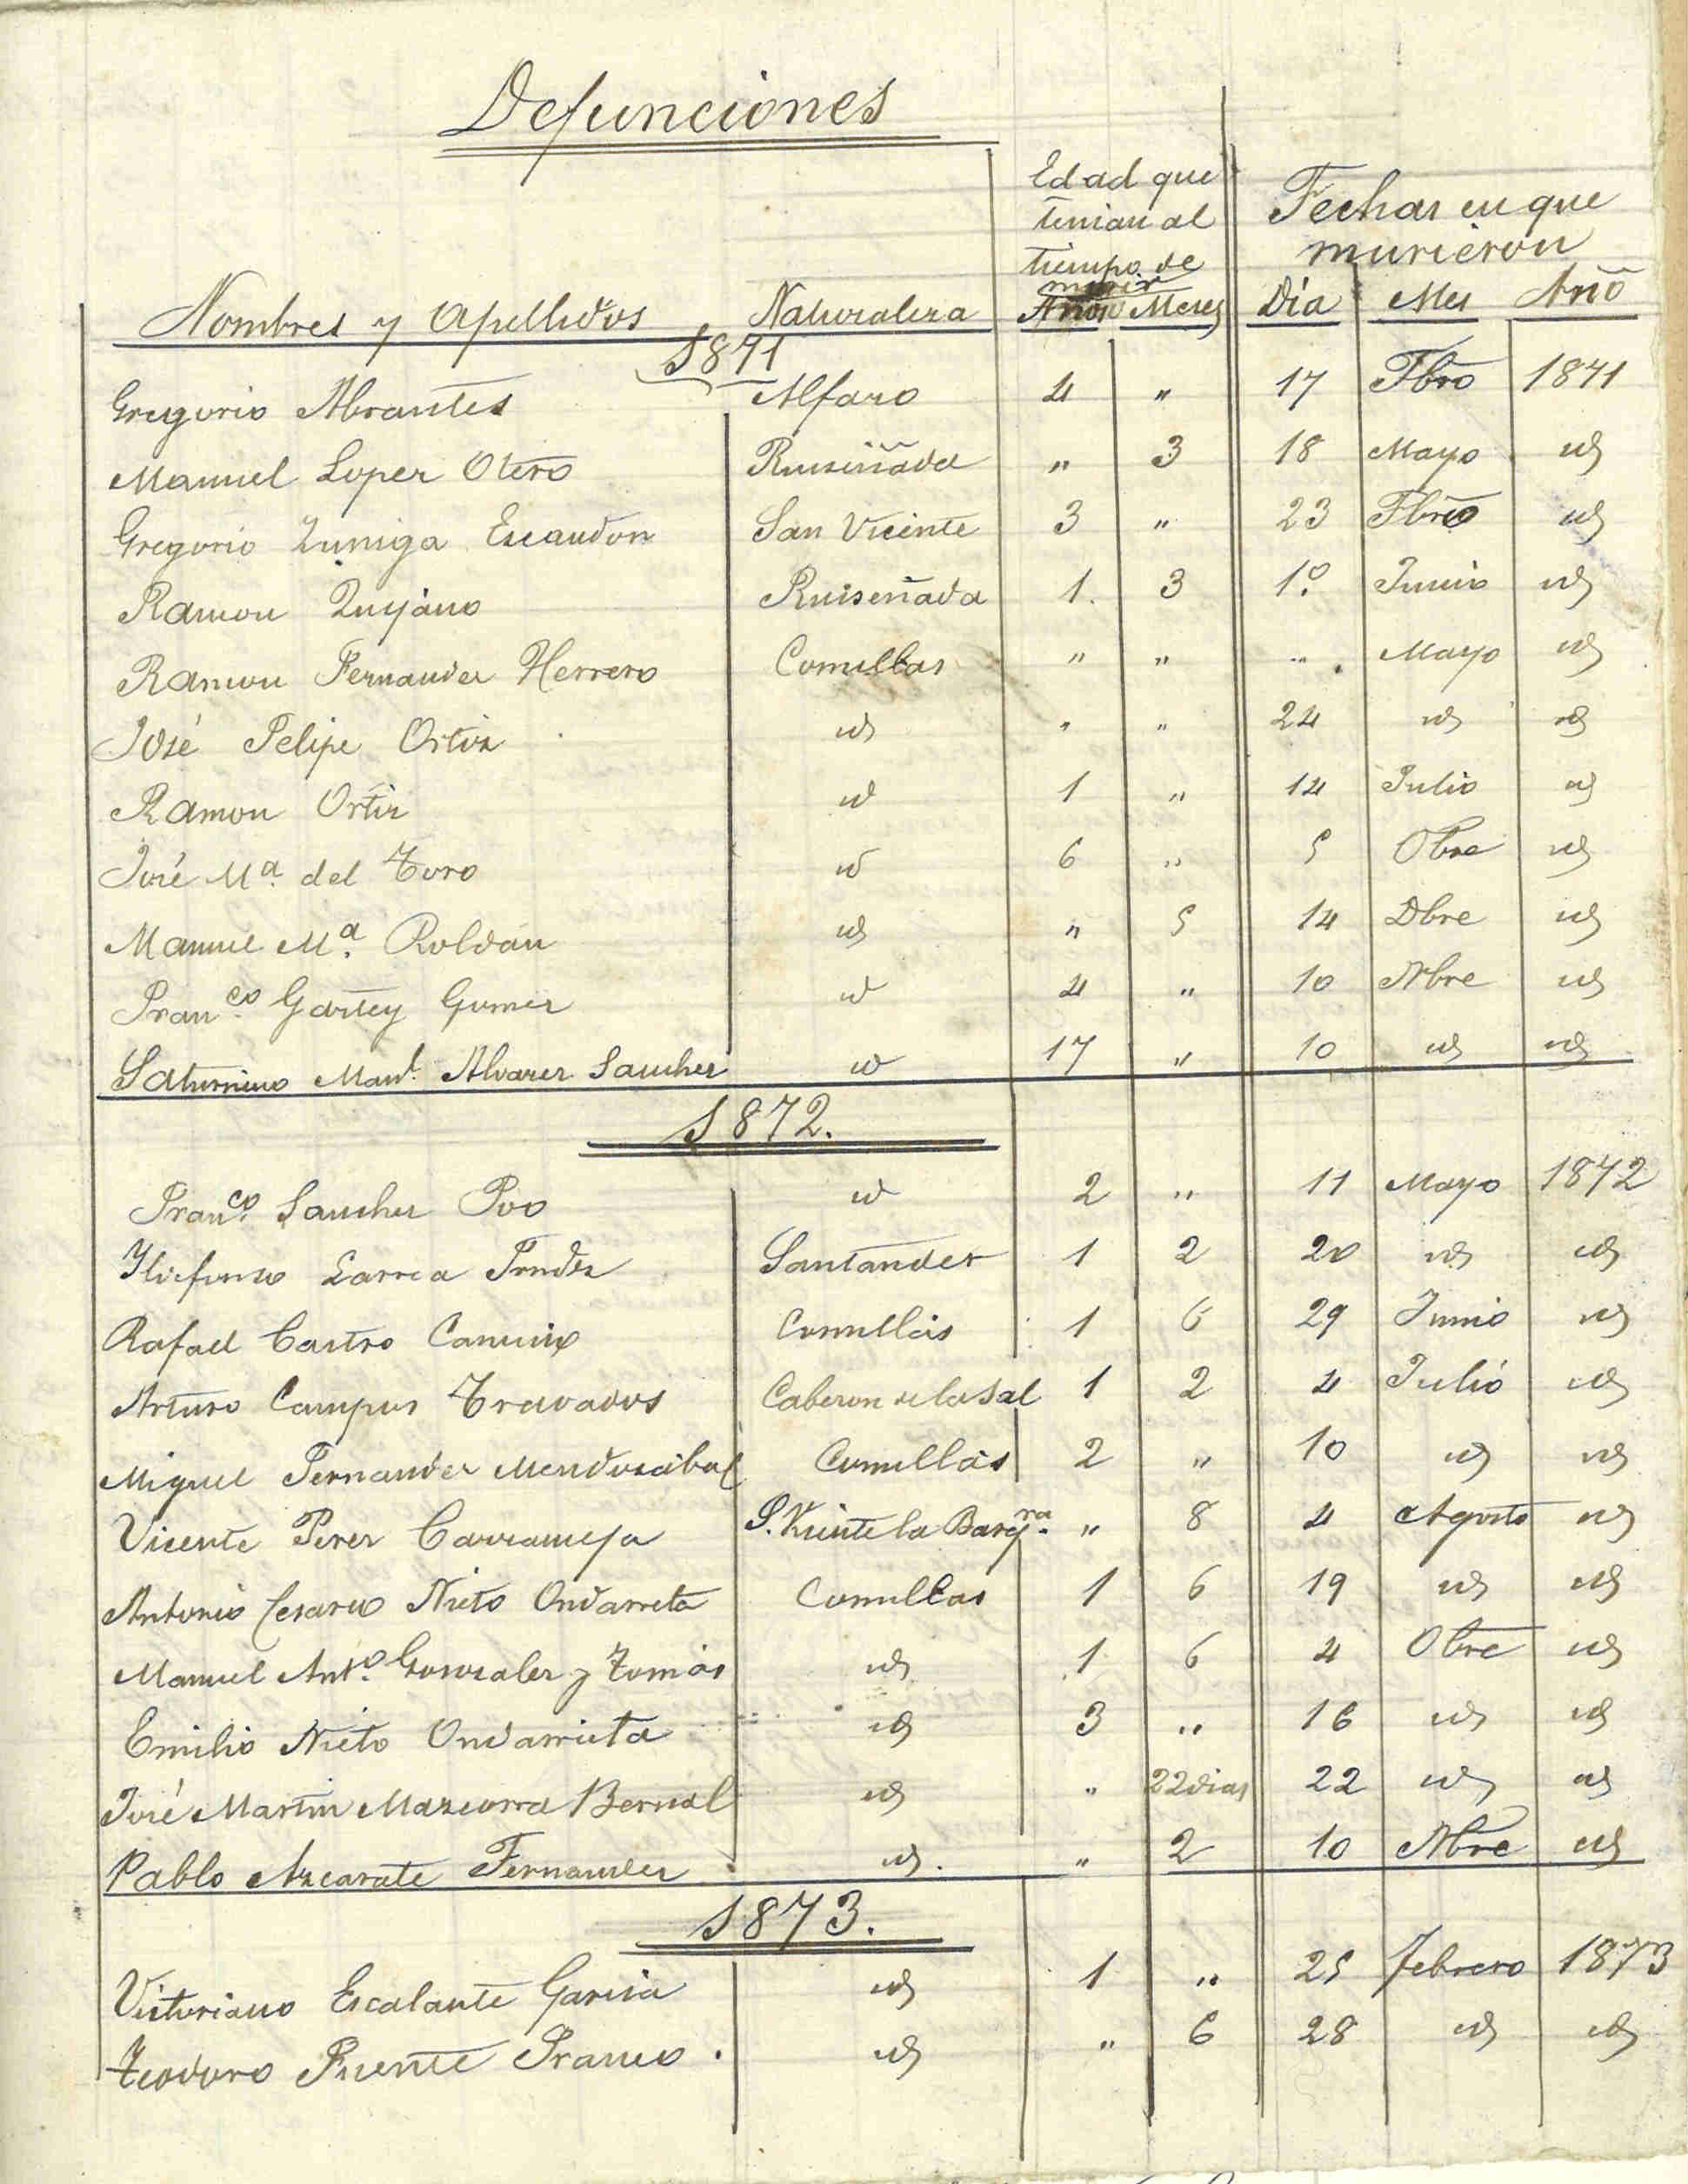 Defunciones
Edad que tenian al tiempo de morir
Fechas en que murieron
Nombres y Apellidos Naturaleza Años Meses Dia Mes Año
1871
Gregorio Abrantes Alfaro 4 " 17 Fbro 1871
Manuel Lopez Otero Ruiseñada " 3 18 Mayo id
Gregorio Zuniga Escandon San Vicente 3 " 23 Fbro id
Ramon Quijano Ruiseñada 1. 3 1º Junio id
Ramon Fernandez Herrero Comillas " " " Mayo id
José Felipe Ortiz id " " 24 id id
Ramon Ortiz id 1 " 14 Julio id
José Mª del Toro id 6 " 5 Obre id
Manuel Mª Roldan id " 5 14 Dbre id
Franco Gomez id 4 " 10 Nbre id
Saturnino Manl. Alvarez Sanchez id 17 " 10 id id
1872.
Franco. Sanchez Poo id 2 " 11 Mayo 1872
Ildefonso Larrea Frndz Santander 1 2 20 id id
Rafael Castro Comillas 1 6 29 Junio id
Arturo Campos Travados Cabezon de la Sal 1 2 4 Julio id
Miguel Fernandez Mendozabal Comillas 2 " 10 id id
Vicente Perez S. Vicente la Barqra. " 8 4 Agosto id
Antonio Cesareo Nieto Ondarreta Comillas 1 6 19 id id
Manuel Anto. Gonzalez y Tomás id 1 6 4 Obre id
Emilio Nieto Ondarrieta id 3 " 16 id id
José Martin Mazcorra Bernal id " 22 dias 22 id id
Pablo Azcarate Fernandez id. " 2 10 Nbre id
1873.
Victoriano Escalante Garcia id 1 " 25 Febrero 1873
Teodoro Puente Franco. id " 6 28 id id